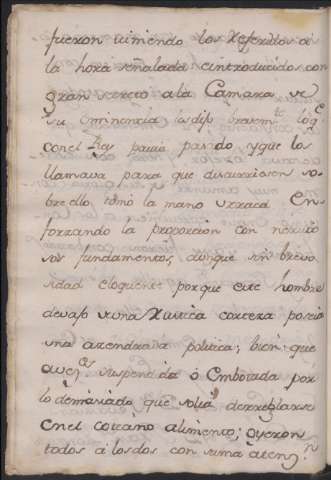 fueron viniendo los Referidos a
la hora señalada e introducidos con
gran secreto a la Camara de
su Eminencia les dijo brevemte. loq̃
con el Rey havia pasado, y que los
llamava para que discurriesen so-
bre ello, tomó la mano Urraca En-
forzando la proporcion con nervio
sos fundamentos, aunque sin brevo
sidad eloquente porque este hombre
devajo de una Rustica corteza poseia
una acendrada politica; bien que
suspendida ó Embotada por
lo demasiado que solia desreglarse
en el coteano alimento; oyeron
todos á los dos con suma atenzn.